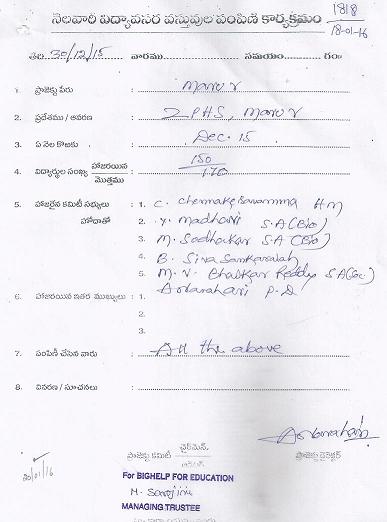 1818
18-01-16
నెలవారి విద్యావసర వస్తువుల పంపిణి కార్యక్రమం
తేది 30/12/15 వారము సమయం గం॥
1. ప్రాజెక్టు పేరు : Marur
2. ప్రదేశము / ఆవరణ : ZPHS, Marur
3. ఏ నెల కొఱకు : Dec. 15
4. విద్యార్థుల సంఖ్య హాజరయిన / మొత్తము : 150 / 170
5. హాజరైన కమిటీ సభ్యులు : 1. C. Chennakesavamma HM
హోదాతో 2. Y. Madhavi S.A (Bio)
3. M. Sudhakar S.A (Bio)
4. B. Siva Sankaraiah
5. M. V. Bhaskar Reddy S.A (Soc)
6. హాజరయిన ఇతర ముఖ్యులు : 1. P.D
2.
3.
7. పంపిణీ చేసిన వారు : All the above
8. వివరణ / సూచనలు :
ప్రాజెక్టు కమిటీ చైర్మెన్. ప్రాజెక్టు డైరెక్టర్
20/01/16
For BIGHELP FOR EDUCATION
M. Sarojini
MANAGING TRUSTEE